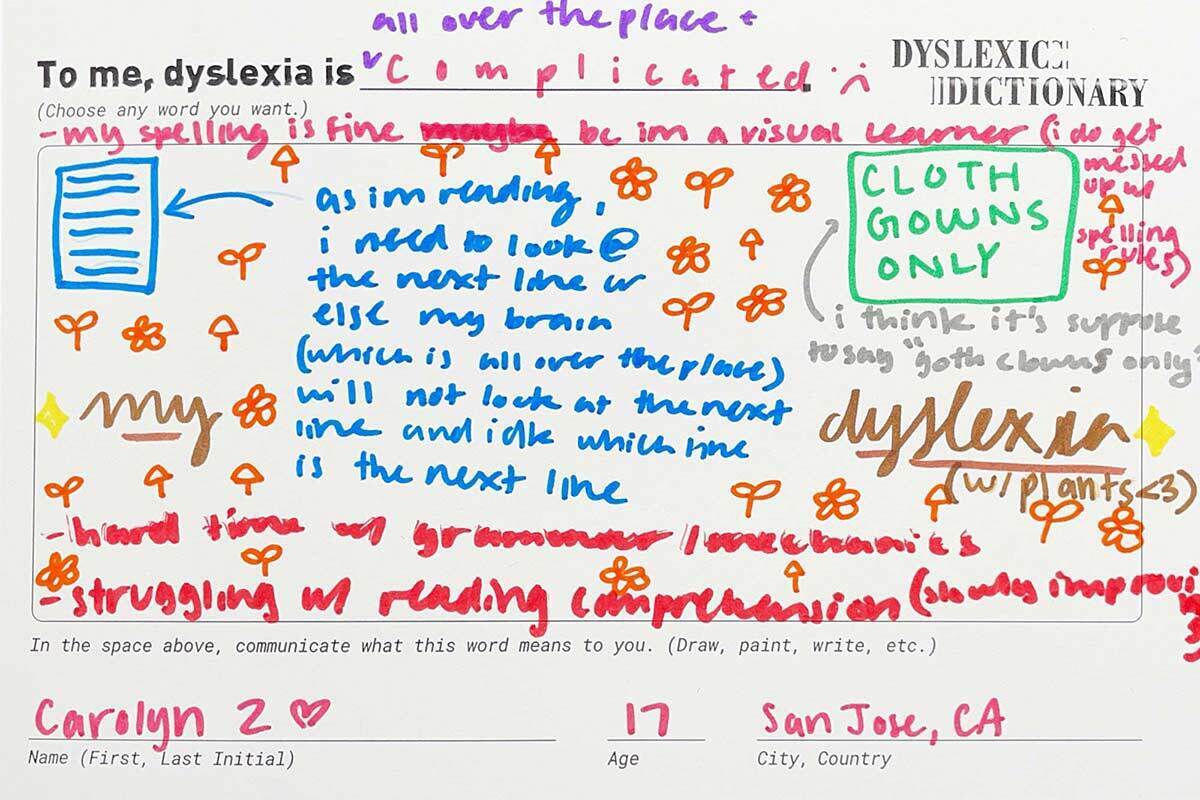 all over the place +
To me, dyslexia is Complicated. :(
DYSLEXIC
DICTIONARY
(Choose any word you want.)
- my spelling is fine maybe bc im a visual learner (i do get
messed
up w/
spelling
rules)
as im reading,
i need to look @
the next line or
else my brain
(which is all over the place)
will not look at the next
line and idk which line
is the next line
CLOTH
GOWNS
ONLY
i think it's suppose
to say "goth clowns only"
my dyslexia
(w/plants<3)
- hard time w/ grammar/mechanics
- struggling w/ reading comprehension (slowly improvi
In the space above, communicate what this word means to you. (Draw, paint, write, etc.)
Carolyn Z
17
San Jose, CA
Name (First, Last Initial)
Age
City, Country